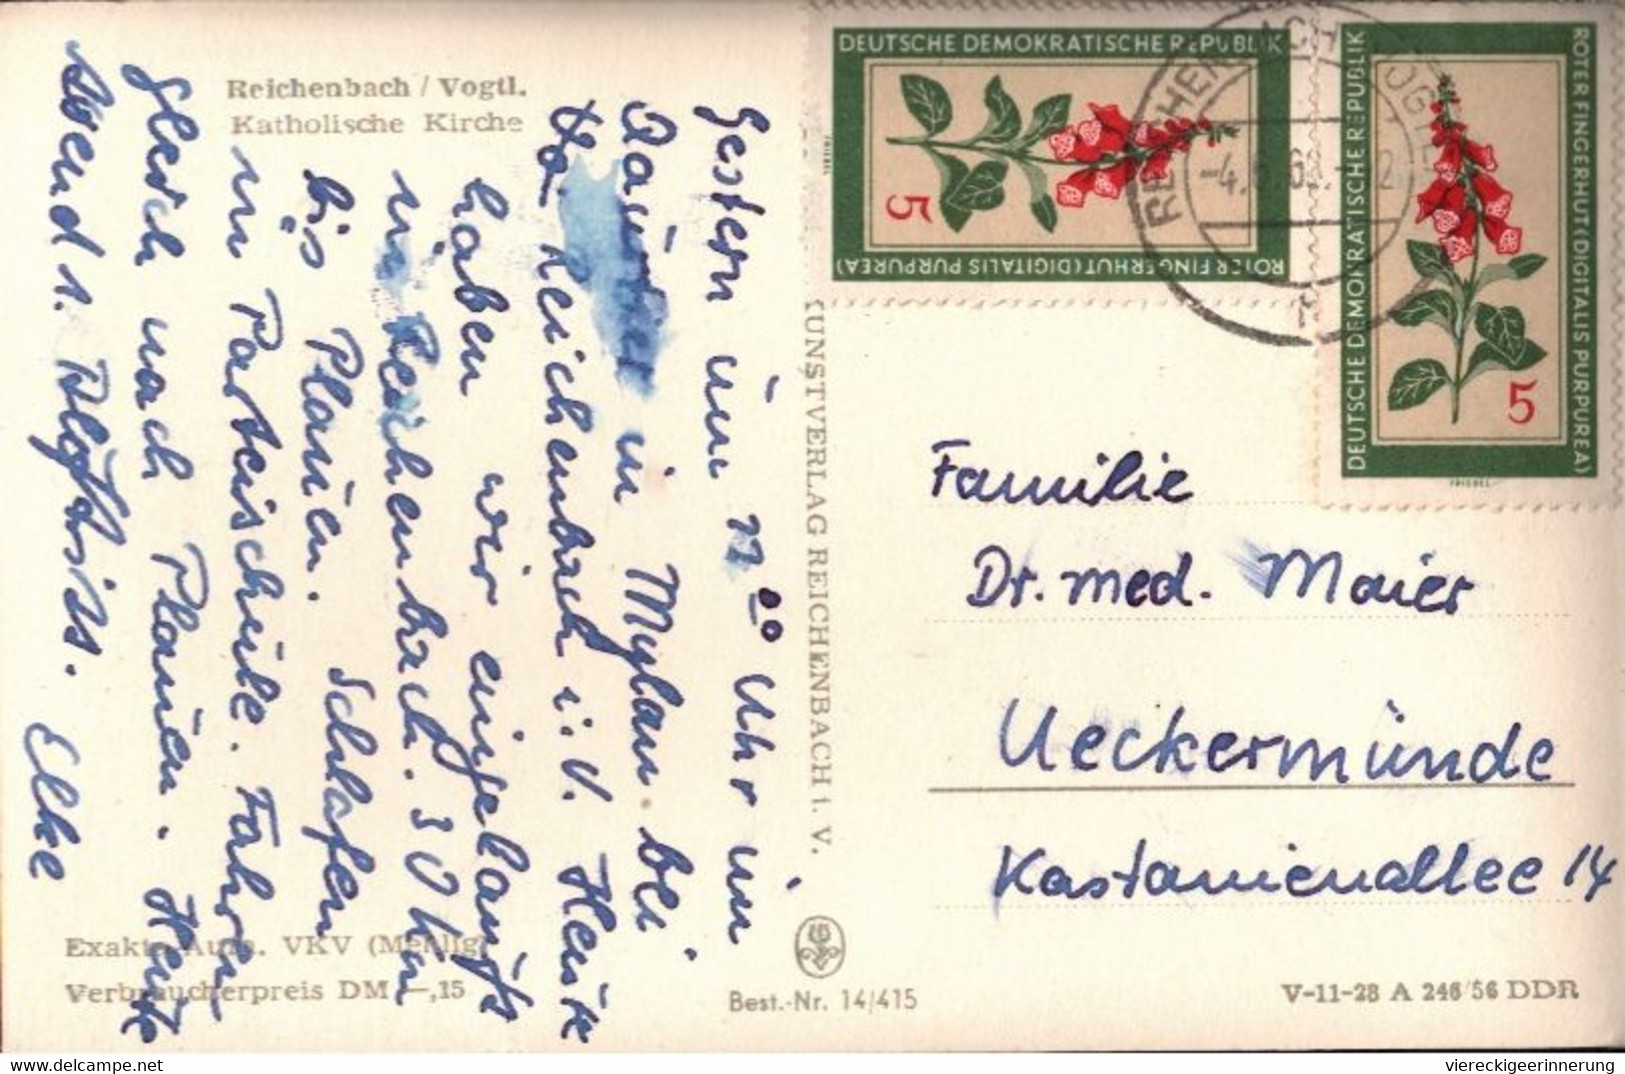 Reichenbach / Vogtl.
Katholische Kirche
Gestern um 12 00 Uhr im
in Mylau bei
Reichenbach i. V. Heute
haben wir eingekauft
in Reichenbach. 30 km
bis Plauen. Schlafen
in Parteischule. Fahren
gleich nach Plauen. Heute
Abend 1.
Elke
Exakte Aufn. VKV (Mehlig)
Verbraucherpreis DM —,15
Best.-Nr. 14/415
KUNSTVERLAG REICHENBACH i. V.
DEUTSCHE DEMOKRATISCHE REPUBLIK
ROTER FINGERHUT (DIGITALIS PURPUREA)
5
DEUTSCHE DEMOKRATISCHE REPUBLIK
ROTER FINGERHUT (DIGITALIS PURPUREA)
5
PRIEBEL
REICHENBACH
Familie
Dr. med. Maier
Ueckermünde
Kastanienallee 14
V-11-28 A 246/56 DDR
viereckigeerinnerung